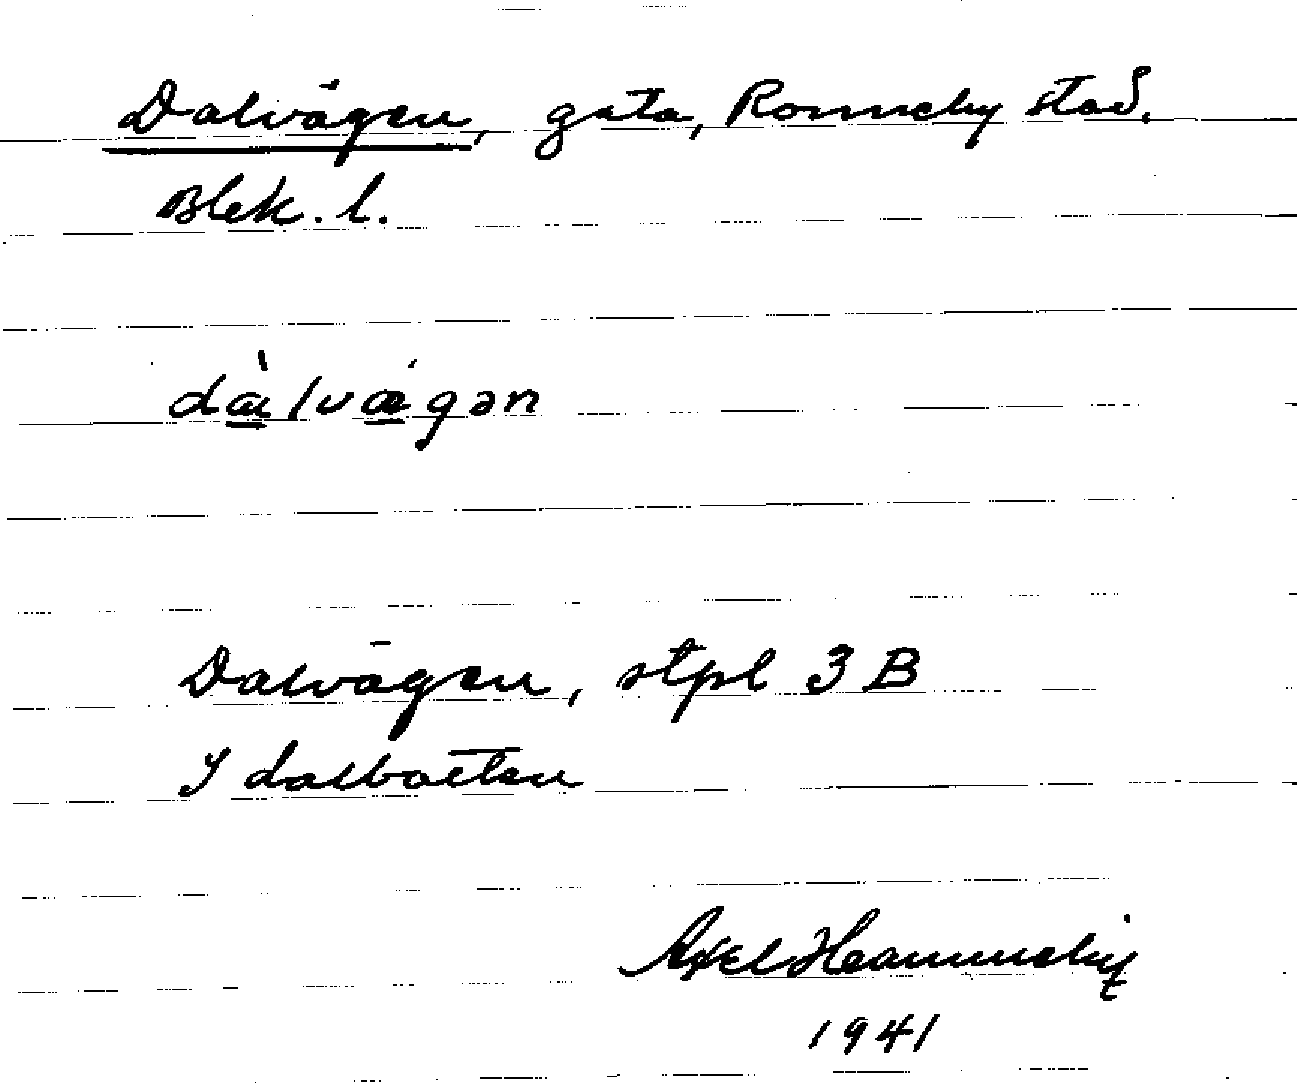 Dalvägen, gata, Ronneby stad.
Blek. l.
dàlvǽgən
Dalvägen, stpl 3B
I dalbotten
Axel
1941